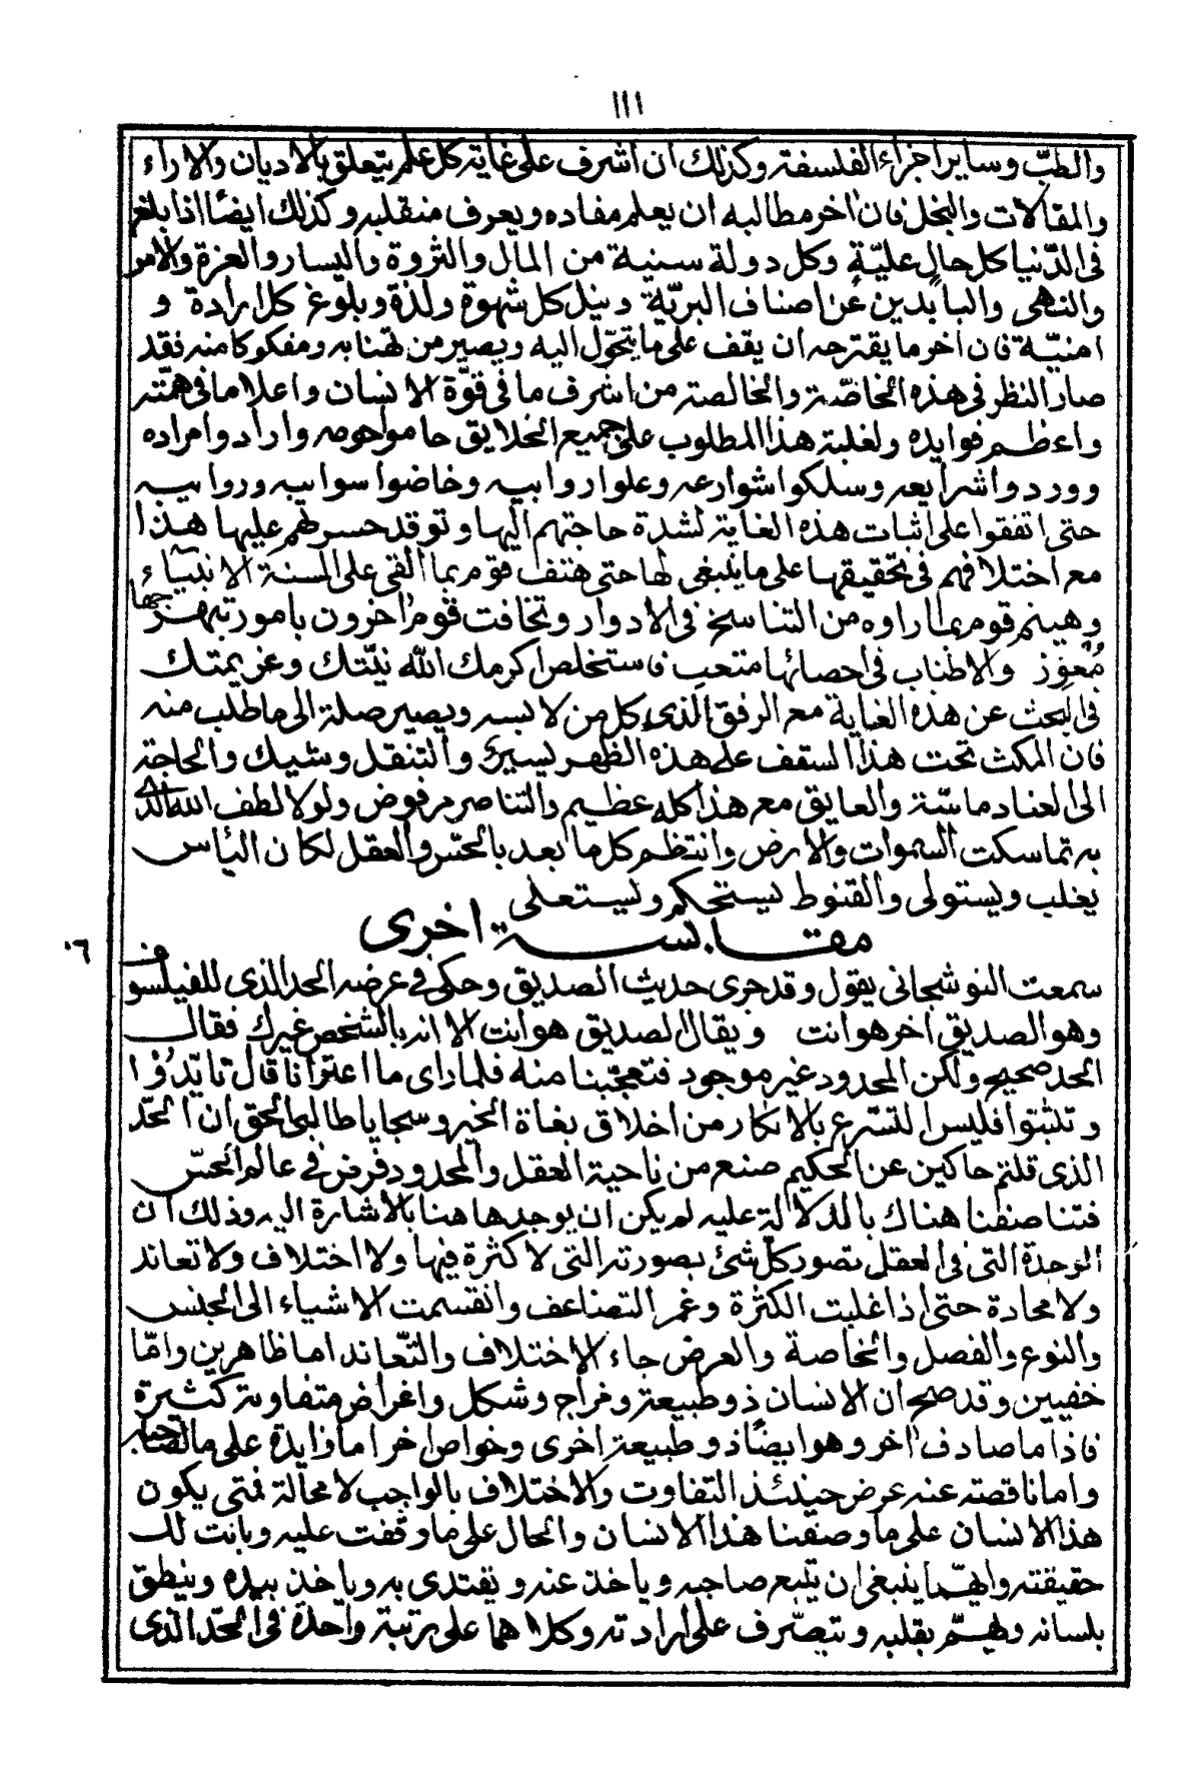 ١١١
والطبّ وساير اجزاء الفلسفة وكذلك ان اشرف على غاية كل علم يتعلق بالاديان والاراء
والمقالات والنحل فان اخر مطالبه ان يعلم مفاده ويعرف منقلبه وكذلك ايضًا اذا بلغ
فى الدّنيا كل حال عليّة وكل دولة سنية من المال والثروة واليسار والعزة والامر
والنهى والبايدين عن اصناف البريّة ونيل كل شهوة ولذة وبلوغ كل ارادة و
امنيّة فان اخر ما يقترحه ان يقف على ما يتحوّل اليه ويصير من لهنا به ومفكوكا منه فقد
صار النظر فى هذه الخاصّة والخالصة من اشرف ما فى قوّة الانسان واعلا ما فى همّته
واعظم فوايده ولغلبة هذا المطلوب على جميع الخلايق حاموا حومه وارادوا مراده
ووردوا شرايعه وسلكوا شوارعه وعلوا روابيه وخاضوا سوابيه وروابيه
حتى اتفقوا على اثبات هذه الغاية لشدة حاجتهم اليها وتوقد حسرتهم عليها هذا
مع اختلافهم فى تحقيقها على ما ينبغى لها حتى هتف قوم بما القى على السنة الانبياء
وهينم قوم بما راوه من التناسخ فى الادوار وتخافت قوم اخرون بامور تبهرجها
مُعوِز والاطناب فى احصائها متعب فاستخلص اكرمك الله نيّتك وعزيمتك
فى البحث عن هذه الغاية مع الرفق الذى كل من لابسه ويصير صلة الى ما طلب منه
فان المكث تحت هذا السقف على هذه الظهر يسير والتنقل وشيك والحاجة
الى العناد ماسّة والعايق مع هذا كله عظيم والتناصر مرفوض ولولا لطف الله الذى
به تماسكت السموات والارض وانتظم كل ما بعد بالحسّ والعقل لكان اليأس
يغلب ويستولى والقنوط يستحكم ويستعلى
مقابسة اخرى
٦٠
سمعت النوشجانى يقول وقد جرى حديث الصديق وحكى فى عرضه الحد الذى للفيلسوف
وهو الصديق اخر هو انت ويقال الصديق هو انت الا انه بالشخص غيرك فقال
الحد صحيح ولكن المحدود غير موجود فتعجّبنا منه فلما راى ما اعترانا قال تايّدُوا
وتلبثوا فليس التسّرع بالانكار من اخلاق بغاة الخير وسجايا طالبى الحق ان الحدّ
الذى قلتم حاكين عن الحكيم صنع من ناحية العقل والمحدود فرض فى عالم الحسّ
فتناصفنا هناك بالدلالة عليه لم يكن ان يوجدها هنا بالاشارة اليه وذلك ان
الوحدة التى فى العقل تصور كلّ شئ بصورته التى لا كثرة فيها ولا اختلاف ولا تعاند
ولا محادة حتى اذا غلبت الكثرة وغمر التضاعف وانقسمت الاشياء الى الجنس
والنوع والفصل والخاصة والعرض جاء الاختلاف والتّعاند اما ظاهرين وامّا
خفيين وقد صح ان الانسان ذو طبيعة ومزاج وشكل واغراض متفاوتة كثيرة
فاذا ما صادف اخر وهو ايضًا ذو طبيعة اخرى وخواص اخر اما زايدة على ما لصاحبه
واما ناقصة عنه عرض حينئذ التفاوت والاختلاف بالواجب لا محالة فمتى يكون
هذا الانسان على ما وصفنا هذا الانسان والحال على ما وقفت عليه وبانت لك
حقيقته وانّما ينبغى ان يتبع صاحبه وياخذ عنه ويقتدى به وياخذ بيده وينطق
بلسانه ويهمّ بقلبه ويتصّرف على ارادته وكلاهما على رتبة واحدة فى الحدّ الذى